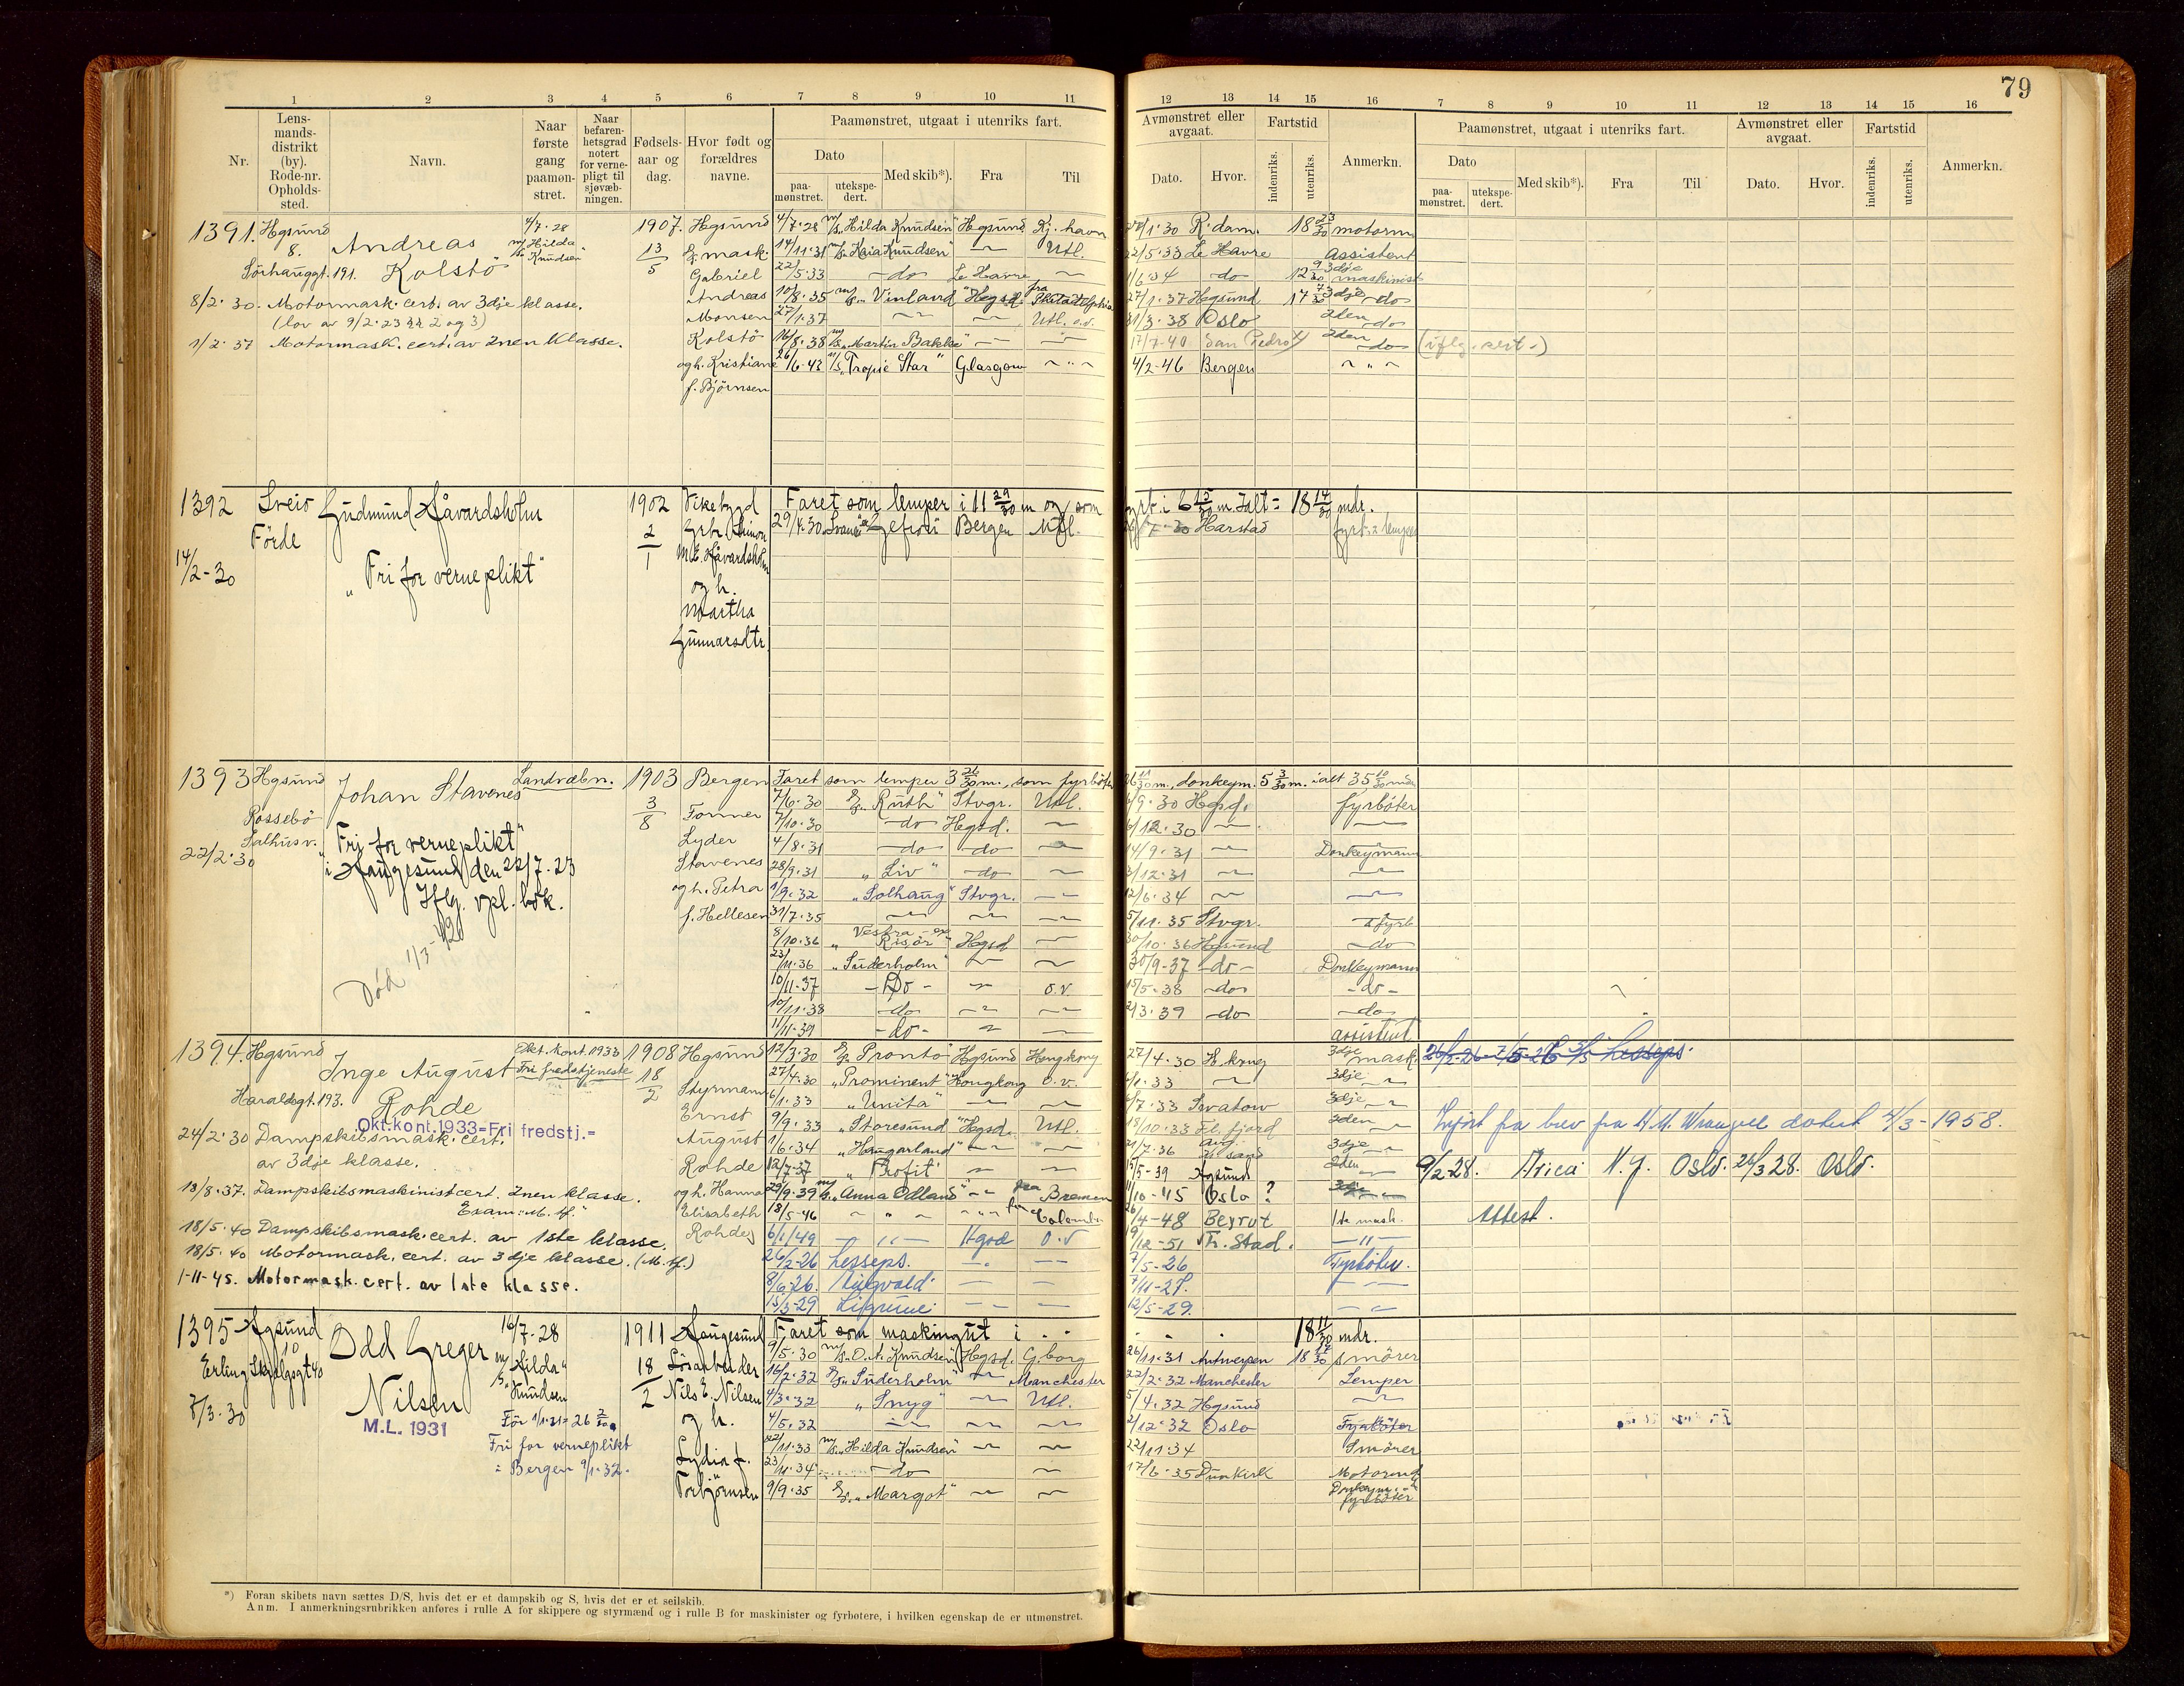 79
1 2 3 4 5 6 7 8 9 10 11
12 13 14 15 16 7 8 9 10 11 12 13 14 15 16
Nr.
Lens-
mands-
distrikt
(by).
Rode-nr.
Opholds-
sted.
Navn.
Naar
første
gang
paamøn-
stret.
Naar
befaren-
hetsgrad
notert
for verne-
pligt til
sjøvæb-
ningen.
Fødsels-
aar og
dag.
Hvor født og
forældres
navne.
Paamønstret, utgaat i utenriks fart.
Dato
paa-
mønstret.
utekspe-
dert.
Med skib*).
Fra
Til
Avmønstret eller
avgaat.
Dato.
Hvor.
Fartstid
indenriks.
utenriks.
Anmerkn.
Paamønstret, utgaat i utenriks fart.
Dato
paa-
mønstret.
utekspe-
dert.
Med skib*).
Fra
Til
Avmønstret eller
avgaat.
Dato.
Hvor.
Fartstid
indenriks.
utenriks.
Anmerkn.
1391. Hgsund
8.
Sørhauggt. 191.
Andreas
Kolstö
4/7.28
m/s "Hilda
Knudsen"
1907. 13/5
Hgsund
Gabriel
Andreas
Monsen
Kolstö
og h. Kristiane
f. Björnsen
8/2.30. Motormask. cert. av 3dje klasse.
(lov av 9/2.23 § 2 og 3)
1/2.37 Motormask. cert. av 2nen Klasse.
4/7.28 m/s "Hilda Knudsen" Hgsund Kj.havn
R.dam. 18 23/30 motorm.
14/11.31 m/s "Kaia Knudsen" Utl.
22/5.33 Le Havre Assistent
22/5.33 do Le Havre
1/6.34 do 12 9/30 3dje maskinist
10/8.35 m/s "Vinland" Hegsd. fra Philadelphia
27/1.37 Hgsund 17 3dje do
27/1.37 Utl. o.v.
31/3.38 Oslo 2den do
16/8.38 m/s "Martin Bakke"
17/7-40 San Pedro 2den do (iflg. sert.)
26/6.43 m/s "Tropic Star" Glasgow
4/2-46 Bergen
1392 Sveio
Förde
14/2-30
Gudmund Håvardsholm
"Fri for verneplikt"
1902 2/1
Vikebygd
Grbr. Simon
M.E. Håvardsholm
og h.
Martha
Gunnarsdtr.
Faret som lemper i 11 29/30 m og som fyrb. i 6 15/30 m. Ialt = 18 14/30 mdr.
29/4.30 Bergen Utl.
Harstad fyrb. & lemper
1393 Hgsund
Rossebö
Salhusv.
22/2.30
Johan Stavenes
Landvæbn.
"Fri for verneplikt"
i Haugesund den 22/7.23
Iflg. vpl. bok.
Död
1903 3/8
Bergen
Former
Lyder
Stavenes
og h. Petra
f. Hellesen
Faret som lemper 3 26/30 m., som fyrböter 26 11/30 m., donkeym. 5 3/30 m. ialt 35 10/30 mdr
7/6.30 "Ruth" Stvgr. Utl.
9.30 Hgsd. fyrböter
7/10.30 do Hegsd.
6/12.30
4/8.31 do do
14/9.31 Donkeymann
28/9.31 "Liv" do
3/12.31
1/9.32 "Solhaug" Stvgr.
12/6.34
31/7.35
5/11.35 Stvgr. fyrb
8/10.36 "Vestra - ex Risör" Hgsd
30/10.36 Hgsund do
23/11.36 "Suderholm"
30/9-37 do Donkeymann
10/11.37 Do o.v.
15/5.38 do do
10/11.38 do
2/3.39 do do
11/11-39 do
assistent
1394. Hgsund
Haraldsgt. 193.
Inge August
Rohde
Okt. kont. 1933
Fri fredstjeneste
Okt.kont.1933=Fri fredstj.=
1908 18/2
Hgsund
Styrmann
Ernst
August
Rohde
og h. Hanna
Elisabeth
Rohde
24/2.30 Dampskibsmask. cert.
av 3dje klasse.
13/8.37. Dampskibsmaskinistcert. 2nen klasse.
18/5.40 Dampskibsmask. cert. av 1ste klasse.
18/5.40 Motormask. cert. av 3dje klasse.
1-11-45. Motormask. cert. av 1ste klasse.
12/3.30 "Pronto" Hgsund Hongkong
27/4.30 H.kong 3dje mask.
27/4.30 "Prominent" Hongkong o.v.
1.33 3dje
6/1.33 "Unita"
7.33 Swatow 3dje
9/9.33 "Storesund" Hegsd. Utl.
10.33 2den
1/6.34 "Haugarland"
7.36 3dje
"Profit"
5-39 Hgsund 2den
29/9.39 m/s "Anna Odland" fra Bremen
10-45 Oslo ? 3dje
18/5-46 fra Colombo
4-48 Beyrut 1te mask.
6/1/49 H-gsd o.v
12-51 Fr. Stad.
26/2-26 Lesseps.
7/5-26 Fyrböter.
8/6-26. Sigvald
7/11-27.
15/3-29
12/5-29.
Inført fra brev fra H. M. Wrangell datert 4/3-1958.
9/2-28. Arica N.Y. Oslo. 28. Oslo.
Attest.
1395 Hgsund
10
Erling Skjalgsgt 40
7/3.30
Odd Greger
Nilsen
M.L. 1931
16/7-28
m/s "Hilda
Knudsen"
Fri for verneplikt
= Bergen 9/1.32.
1911 18/2
Haugesund
Lösarbeider
Nils E. Nilsen
og h.
Lydia f.
Torbjörnsen
Faret som maskingut i 18 11/30 mdr.
9/5.30 m/s "O. A. Knudsen" Hgsd. G.borg
26/11.31 Antwerpen 18 17/30 smörer
16/2.32 "Suderholm" Manchester
22/2.32 Manchester Lemper
4/3.32 "Snyg" Utl.
5/4.32 Hgsund
4/5.32
2/12.32 Oslo Fyrböter
11.33 m/s "Hilda Knudsen"
22/11 34 Smörer
23/11.34 do
17/6.35 Dunkirk Motormd
9/9.35 "Margot"
Donkeym.
fyrböter
*) Foran skibets navn sættes D/S, hvis det er et dampskib og S, hvis det er et seilskib.
Anm. I anmerkningsrubrikken anføres i rulle A for skippere og styrmænd og i rulle B for maskinister og fyrbøtere, i hvilken egenskap de er utmønstret.